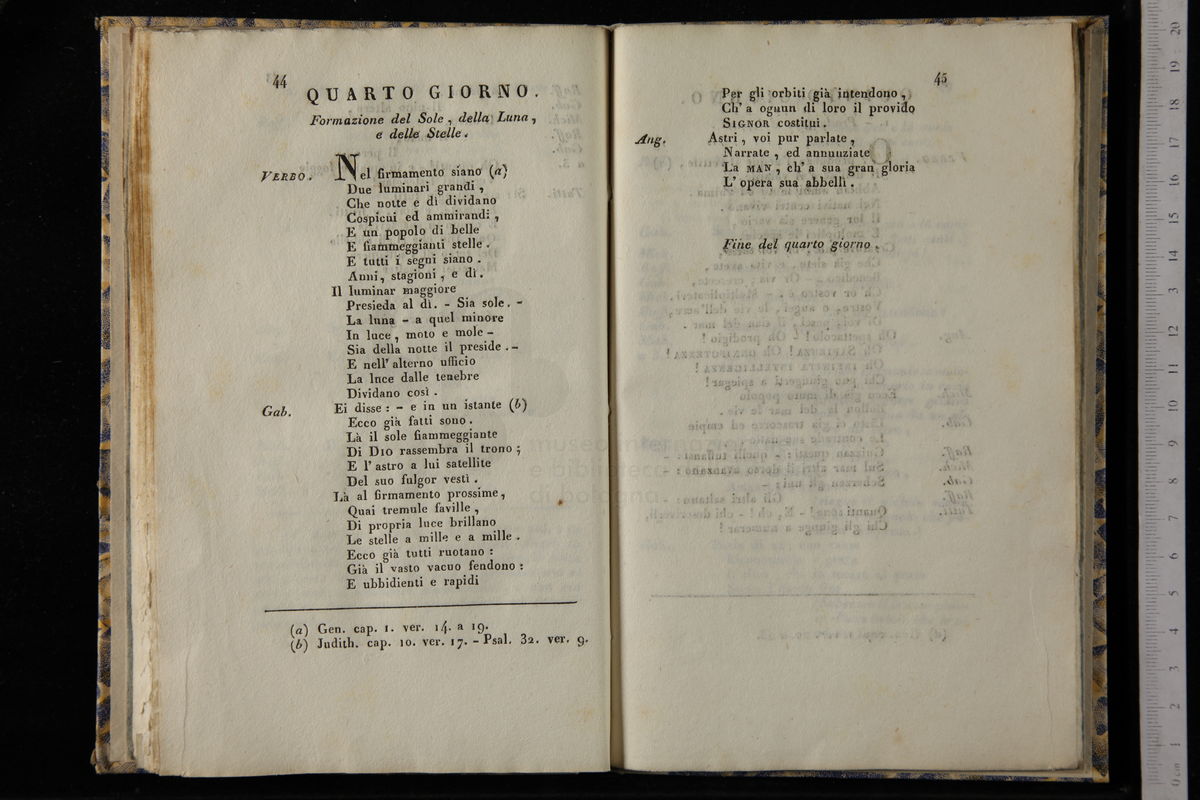 44
QUARTO GIORNO.
Formazione del Sole, della Luna,
e delle Stelle.
VERBO. Nel firmamento siano (a)
Due luminari grandi,
Che notte e dì dividano
Cospicui ed ammirandi,
E un popolo di belle
E fiammeggianti stelle.
E tutti i segni siano.
Anni, stagioni, e dì.
Il luminar maggiore
Presieda al dì. - Sia sole. -
La luna - a quel minore
In luce, moto e mole -
Sia della notte il preside. -
E nell' alterno ufficio
La luce dalle tenebre
Dividano così.
Gab. Ei disse: - e in un istante (b)
Ecco già fatti sono.
Là il sole fiammeggiante
Di DIO rassembra il trono;
E l' astro a lui satellite
Del suo fulgor vestì.
Là al firmamento prossime,
Quai tremule faville,
Di propria luce brillano
Le stelle a mille e a mille.
Ecco già tutti ruotano:
Già il vasto vacuo fendono:
E ubbidienti e rapidi
(a) Gen. cap. 1. ver. 14. a 19.
(b) Judith. cap. 10. ver. 17. - Psal. 32. ver. 9.
45
Per gli orbiti già intendono,
Ch' a ognun di loro il provido
SIGNOR costituì.
Ang. Astri, voi pur parlate,
Narrate, ed annunziate
La MAN, ch' a sua gran gloria
L' opera sua abbellì.
Fine del quarto giorno.
museo internazionale
e biblioteca
di bologna